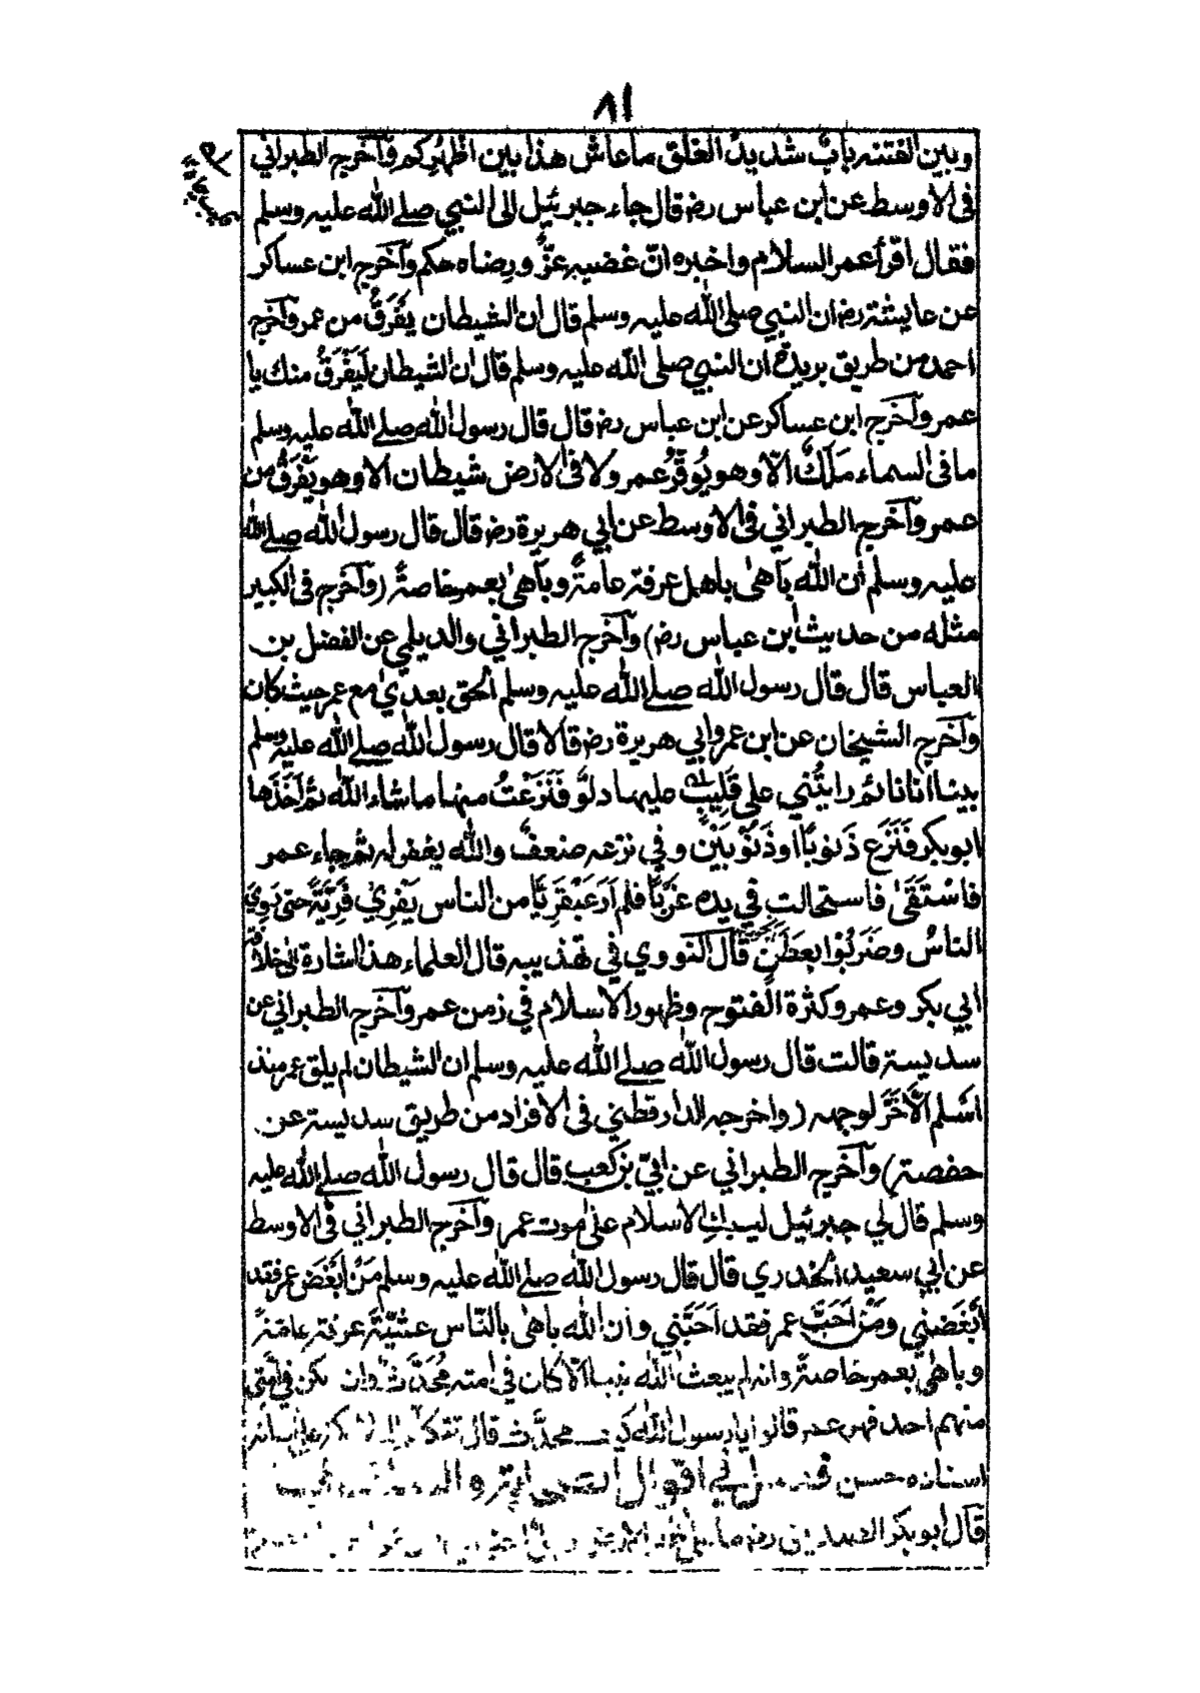 ٨١
وبين الفتنه بابٌ شديدُ الغلق ماعاش هذا بين اظهُرِكم وآخرج الطبراني
فى الاوسط عن ابن عباس رضہ قال جاء جبرئيل الى النبي صلے اللّٰه عليہ وسلم
فقال اقرأ عمر السلام واخبره انّ غضبہ عزٌّ ورضاه حكم وآخرج ابن عساكر
عن عايشتہ رضہ ان النبي صلى اللّٰه عليہ وسلم قال ان الشيطان يَفْرَقُ من عمر وآخرج
احمد من طريق بريدة ان النبي صلى اللّٰه عليہ وسلم قال ان الشيطان لَيَفْرَقُ منك يا
عمر وآخرج ابن عساكر عن ابن عباس رضہ قال قال رسول اللّٰه صلے اللّٰه عليہ وسلم
ما فى السماء مَلَكٌ الّا وهو يُوَقِّرُ عمر ولا فى الارض شيطان الا وهو يَفْرَقُ من
عمر وآخرج الطبراني فى الاوسط عن ابي هريرة رضہ قال قال رسول اللّٰه صلے اللّٰه
عليہ وسلم ان اللّٰه بَاهىٰ باهل عرفتہ عامتہً وبَاهىٰ بعمر خاصتہً (وآخرج فى الكبير
مثله من حديث ابن عباس رضہ) وآخرج الطبراني والديلمي عن الفضل بن
العباس قال قال رسول اللّٰه صلے اللّٰه عليہ وسلم الحق بعدي مع عمر حيث كان
وآخرج الشيخان عن ابن عمر وابي هريرة رضہ قالا قال رسول اللّٰه صلے اللّٰه عليہ وسلم
بينا انا نائم رايتُني على قَلِيبٍ عليها دلوٌ فَنَزَعْتُ منها ماشاء اللّٰه ثم اَخَذَها
ابوبكر فَنَزَع ذَنوبًا او ذَنُوْبَيْن وفي نزعہ ضعفٌ واللّٰه يغفرلہ ثم جاء عمر
فاسْتَقَىٰ فاستحالت في يده غَرْبًا فلم اَرَ عَبْقَرِيًّا من الناس يَفْرِيْ فَرِيَّہً حتى رَوِيَ
الناسُ وضَرَبُوْا بعَطَنٍ قال النووي في تهذيبہ قال العلماء هذا اشارة الىٰ خلافۃ
ابي بكر وعمر وكثرة الفتوح وظهور الاسلام في زمن عمر وآخرج الطبراني عن
سديستہ قالت قال رسول اللّٰه صلے اللّٰه عليہ وسلم ان الشيطان لم يلق عمر منذ
اَسْلم الَّا خَرَّ لوجهہ (واخرجہ الدارقطني فى الافراد من طريق سديستہ عن
حفصتہ) وآخرج الطبراني عن ابيّ بن كعب قال قال رسول اللّٰه صلے اللّٰه عليہ
وسلم قال لي جبرئيل ليبكِ الاسلام علىٰ موت عمر وآخرج الطبراني فى الاوسط
عن ابي سعيد الخدري قال قال رسول اللّٰه صلے اللّٰه عليہ وسلم مَنْ اَبْغَضَ عمر فقد
اَبْغَضَنِي ومَنْ اَحَبَّ عمر فقد اَحَبَّنِي وان اللّٰه باهىٰ بالنّاس عشيّتہَ عرفتہ عامتہً
وباهىٰ بعمر خاصتہً وانہ لم يبعث اللّٰه نبيا الّا كان في امتہ مُحَدَّث وان يكن في امتي
منهم احد فهو عمر قالوا يا رسول اللّٰه كيف محدَّث قال تتكلم
اسناده حسن اقوال الصحابتہ
قال ابوبكر الصديق رضہ